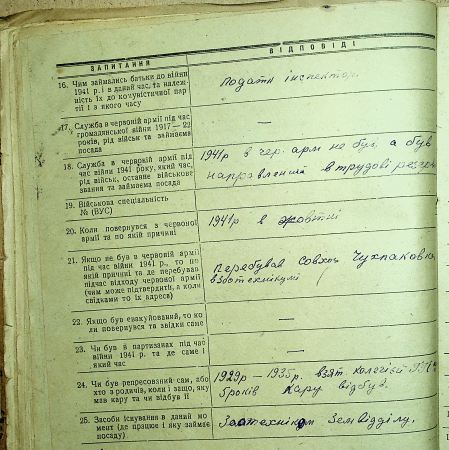 ЗАПИТАННЯ
ВІДПОВІДІ
16. Чим займались батьки до війни
1941 р. і в даний час, та належ-
ність їх до комуністичної пар-
тії і з якого часу
Податн інспектор.
17. Служба в червоній армії під час
громадянської війни 1917—22
років, рід військ та займаєма
посада
—
18. Служба в червоній армії під
час війни 1941 року, який час,
рід військ, останнє військове
звання та займаєма посада
1941р в чер. арм не був. а був
направлений в трудові
19. Військова спеціальність
№ (ВУС)
20. Коли повернувся з червоної
армії та по якій причині
1941р в жовтні
21. Якщо не був в червоній армії
під час війни 1941 р., то по
якій причині та де перебував
підчас відходу червоної армії
(чим може підтвердить, а коли
свідками то їх адреса)
Перебував Совхоз
22. Якщо був евакуйований, то ко-
ли повернувся та звідки саме
—
23. Чи був в партизанах під час
війни 1941 р. та де саме і
який час
—
24. Чи був репресовний сам, або
хто з родичів, коли і защо, яку
мав кару та чи відбув її
1929р — 1935р. взят колегієй
5років Кару відбув.
25. Засоби існування в даний мо-
мент (де працює і яку займає
посаду)
Зоотехніком Земвідділу.